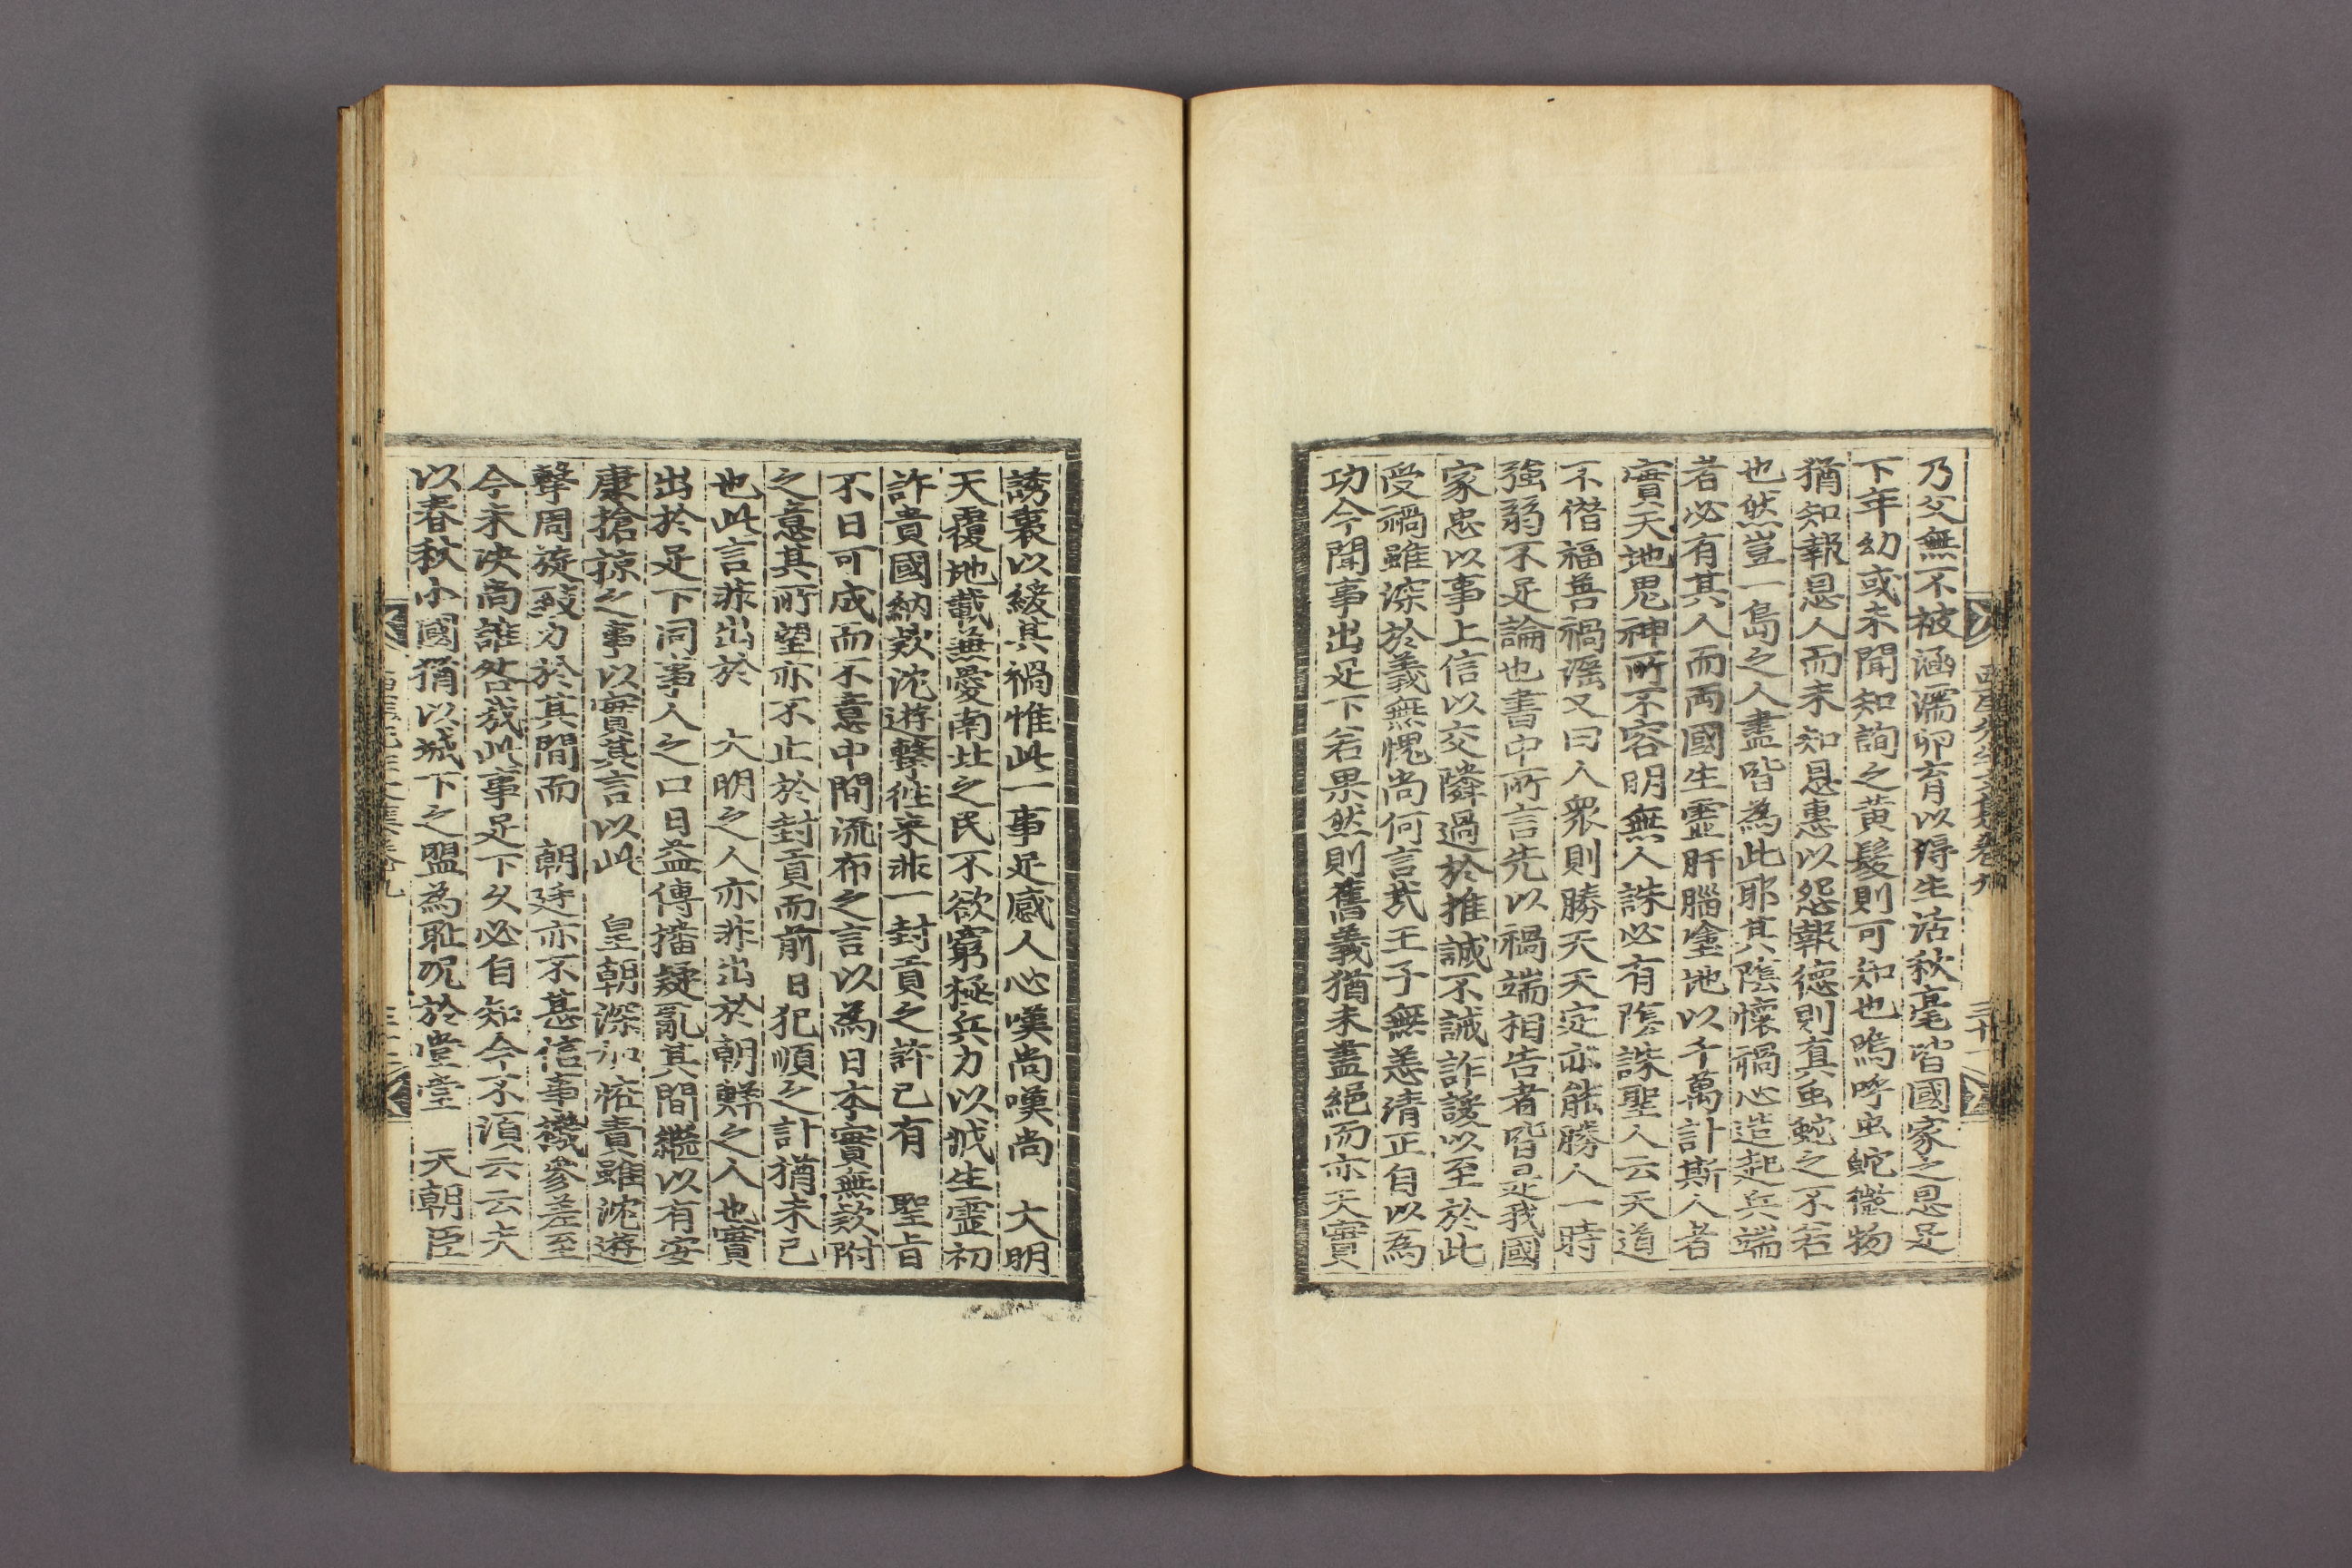 乃父無不被涵濡卵育以得生活秋毫皆國家之恩足
下年幼或未聞知詢之黃髮則可知也嗚呼虫蛇微物
猶知報恩人而未知恩惠以怨報德則眞虫蛇之不若
也然豈一島之人盡皆為此耶其陰懷禍心造起兵端
者必有其人而兩國生靈肝腦塗地以千萬計斯人者
實天地鬼神所不容明無人誅必有陰誅聖人云天道
不僭福善禍滛又曰人衆則勝天天定亦能勝人一時
強弱不足論也書中所言先以禍端相告者皆是我國
家忠以事上信以交隣過於推誠不誠詐諼以至於此
受禍雖深於義無愧尚何言哉王子無恙淸正自以為
功今聞事出足下若果然則舊義猶未盡絕而亦天實
誘衷以緩其禍惟此一事足感人心嘆尚嘆尚　大明
天覆地載兼愛南北之民不欲窮極兵力以戕生靈初
許貴國納欵沈遊擊徃来非一封貢之許已有　聖旨
不日可成而不意中間流布之言以為日本實無欵附
之意其所望亦不止於封貢而前日犯順之計猶未已
也此言非出於　大明之人亦非出於朝鮮之人也實
出於足下同事人之口日益傳播疑亂其間繼以有安
康搶掠之事以實其言以此　皇朝深加疪責雖沈遊
擊周旋效力於其間而　朝廷亦不甚信事機參差至
今未決尚誰咎哉此事足下久必自知今不須云云夫
以春秋小國猶以城下之盟為恥况於堂堂　天朝臣